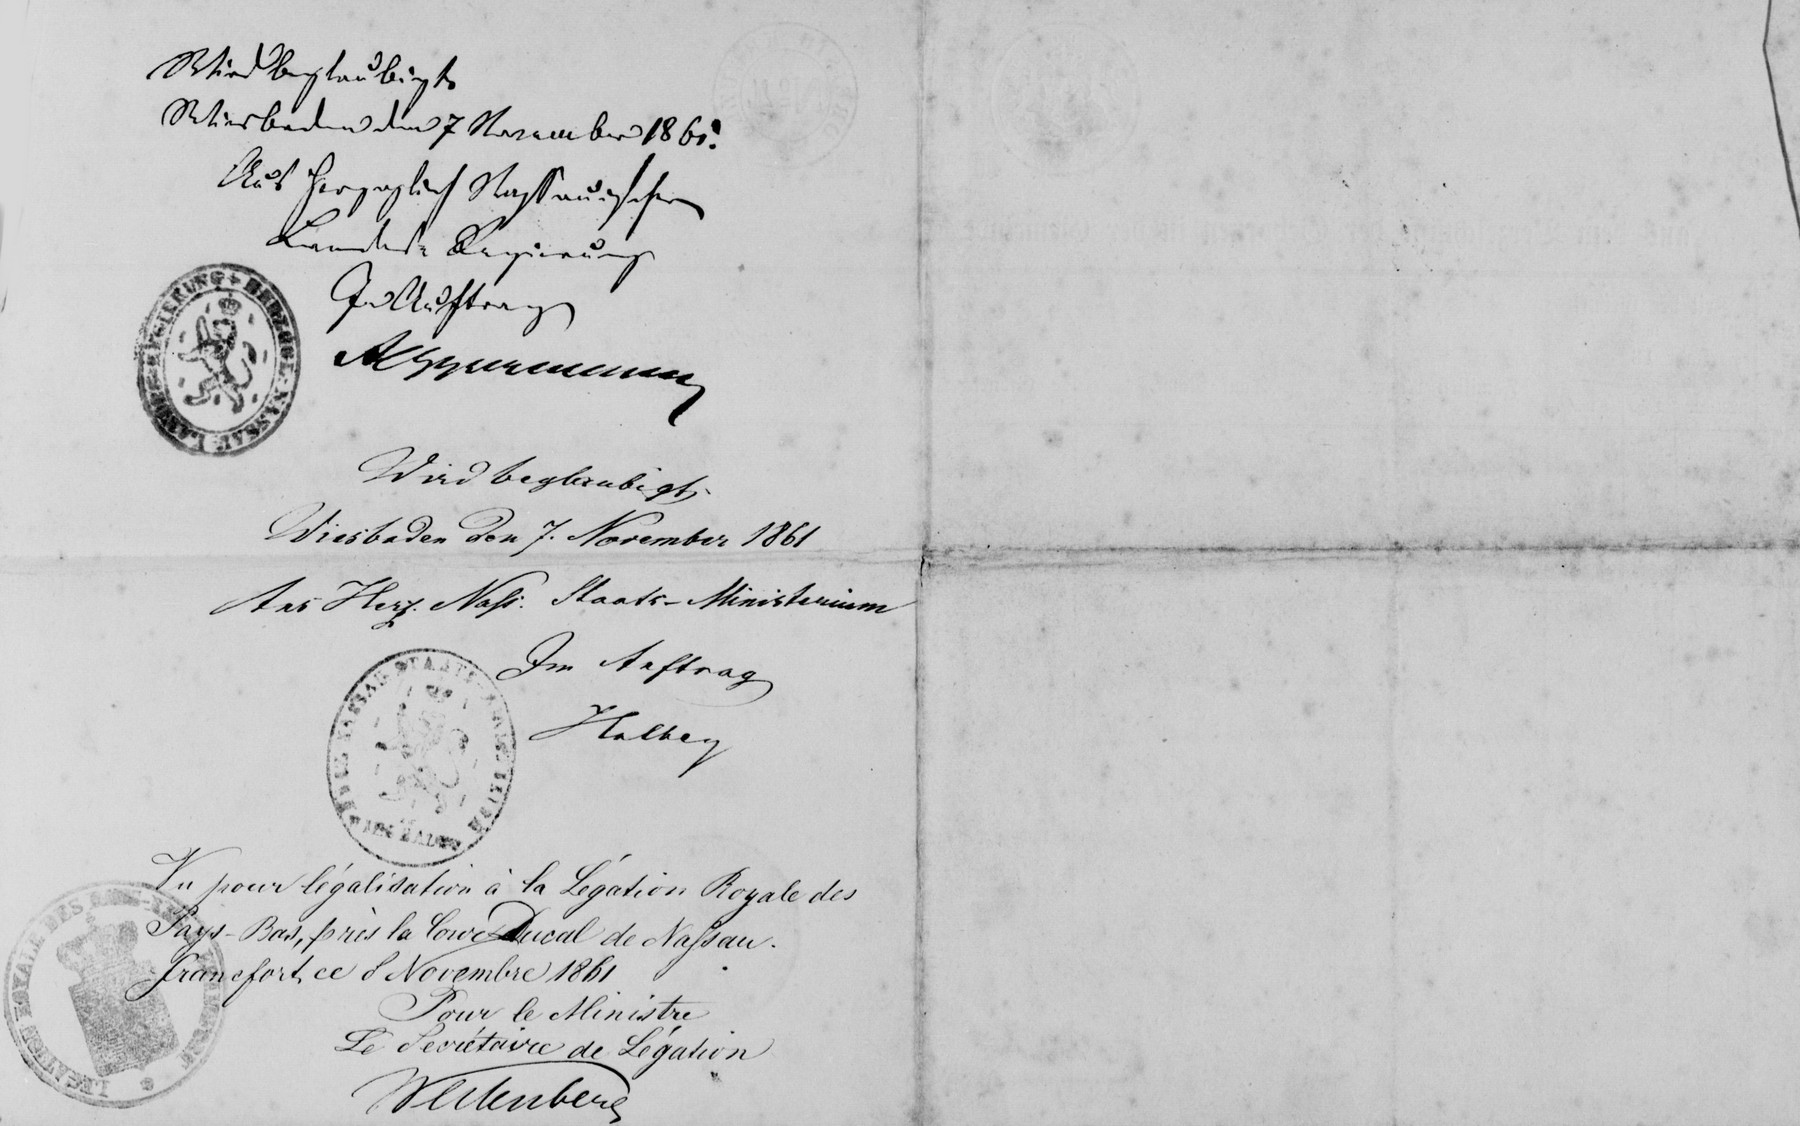 Wird beglaubigt
Wiesbaden den 7 November 1861.
Aus Herzoglich Nassauischer
Landes Regierung
Im Auftrag
LANDES-REGIERUNG HERZOGL. NASSAU
Wird beglaubigt.
Wiesbaden den 7. November 1861
Aus Herz. Nass. Staats-Ministerium
Im Auftrag
Halbey
Vu pour légalisation à la Légation Royale des
Pays-Bas, près la Cour Ducal de Nassau.
francfort, ce 8 Novembre 1861
Pour le Ministre
Le Secrétaire de Légation
LEGATION ROYALE DES PAYS-BAS